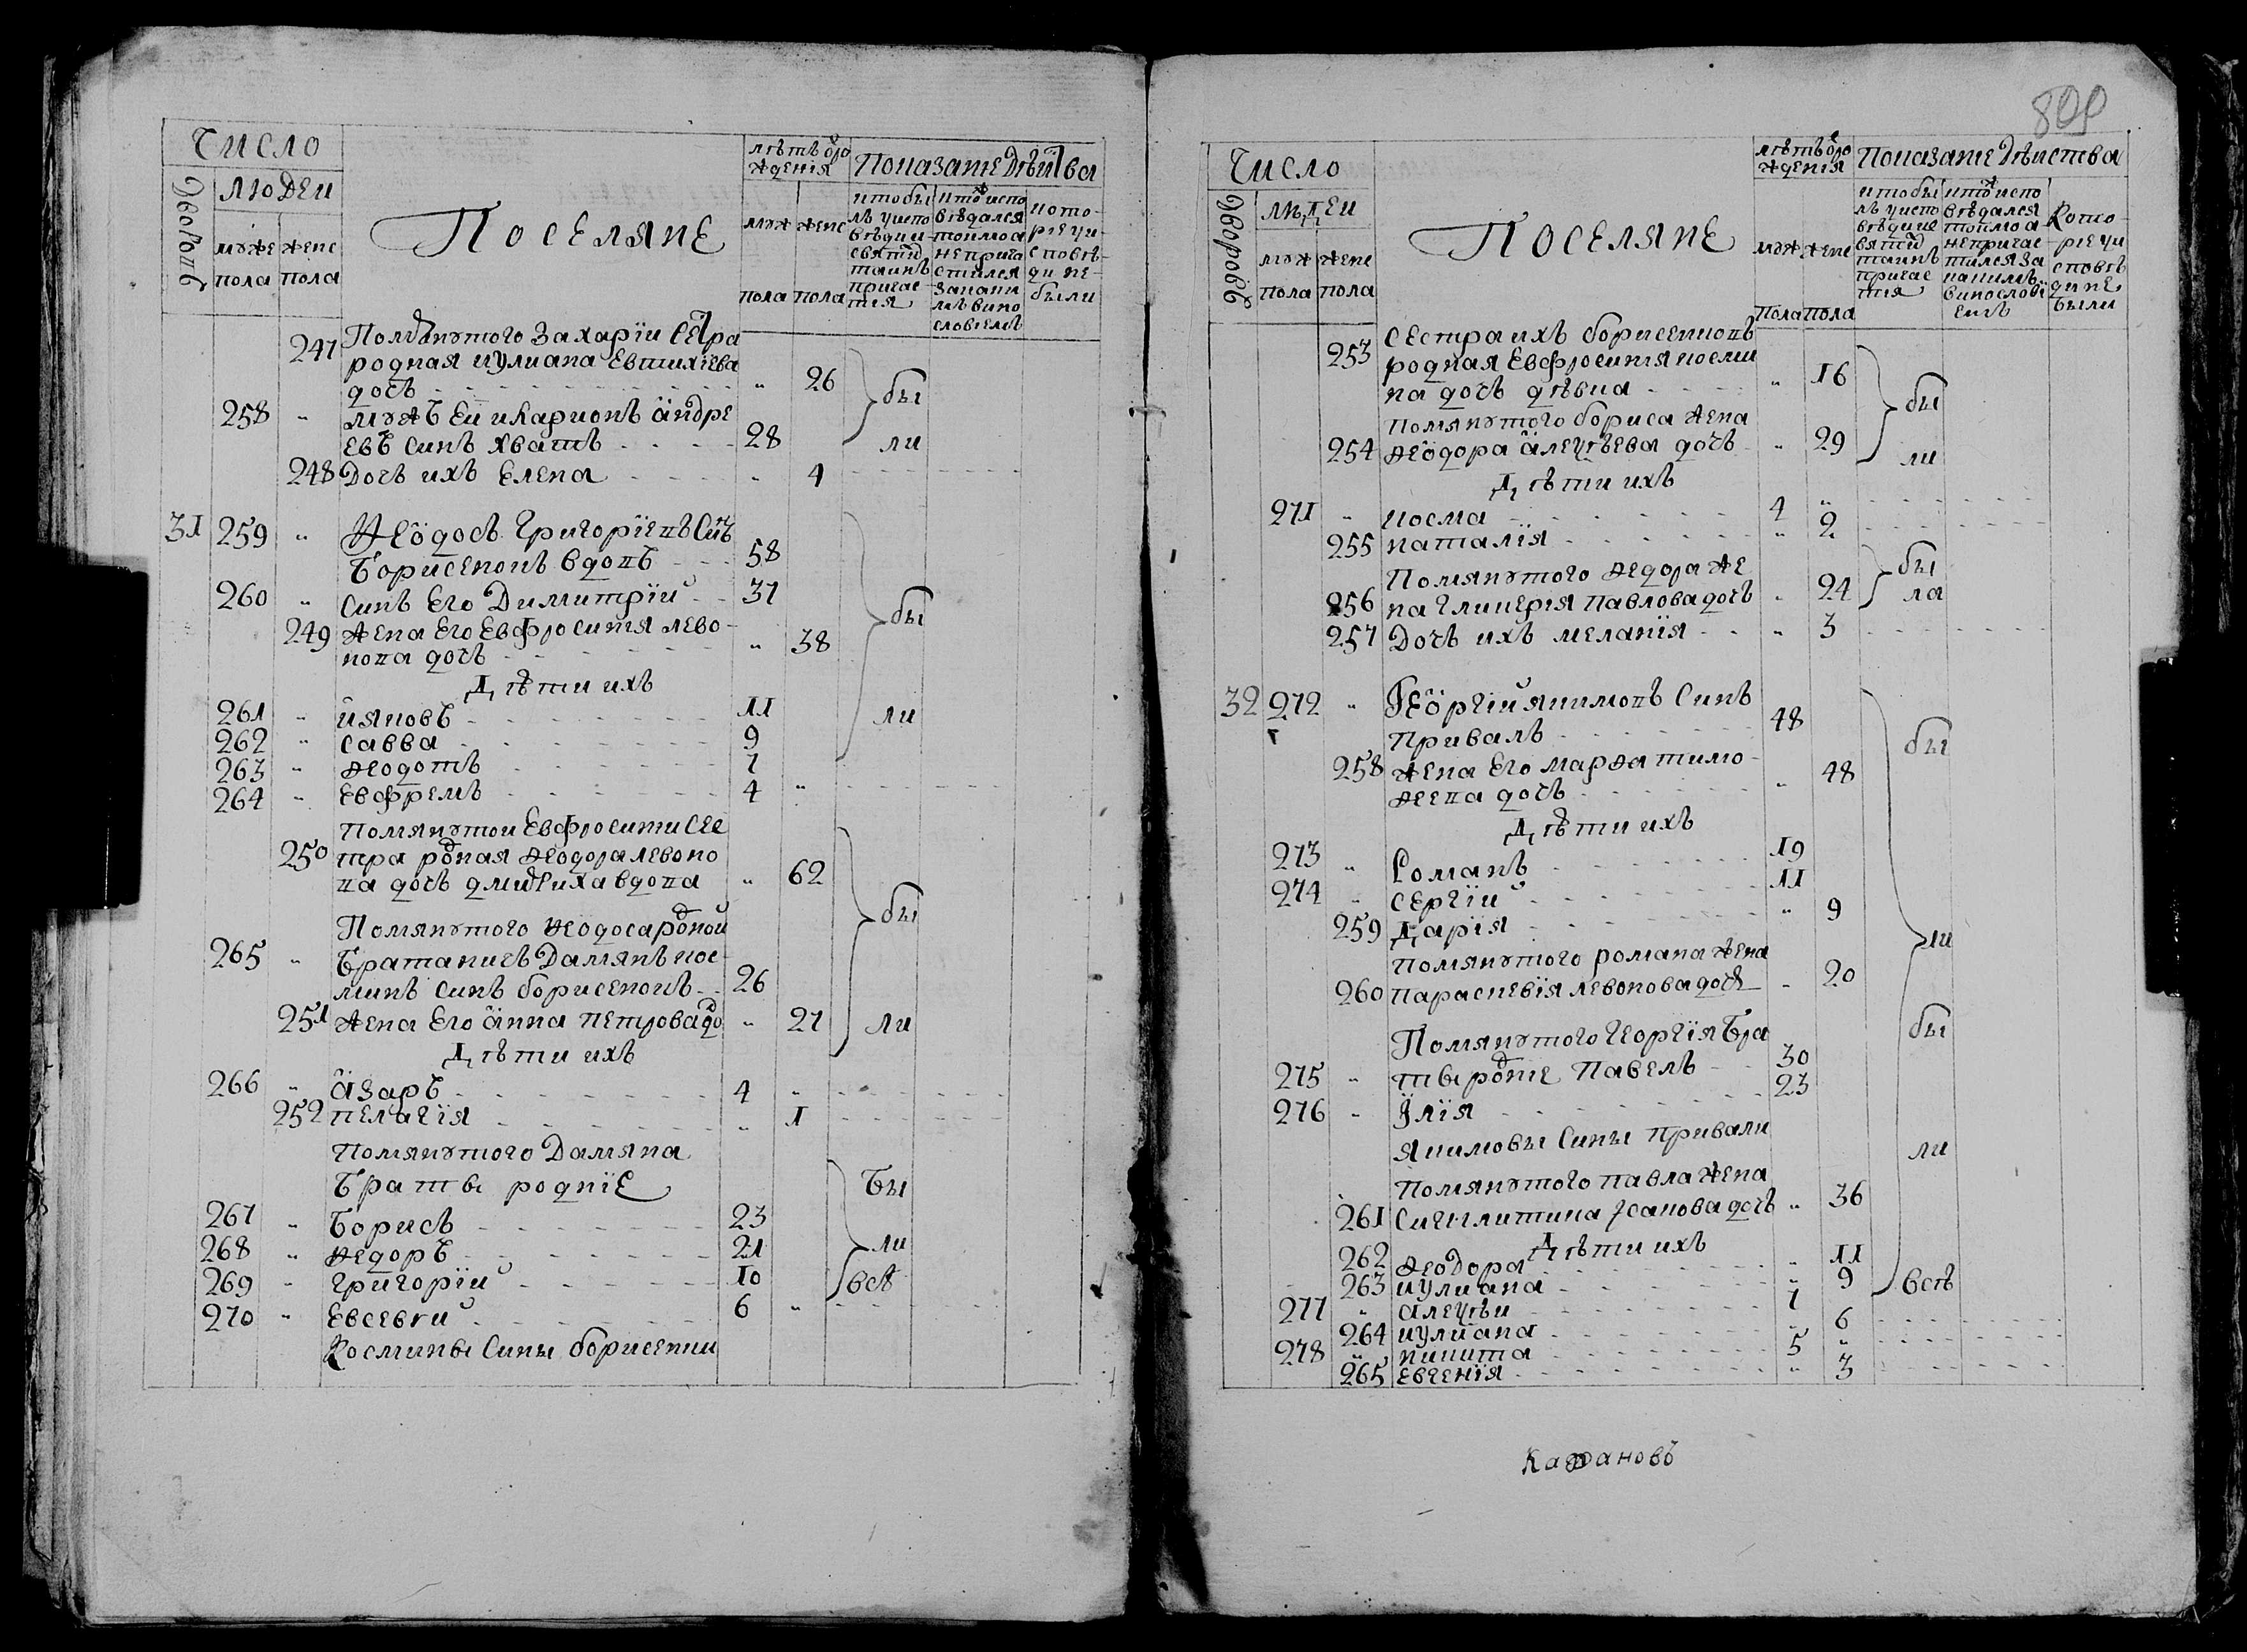 Число
Дворовъ
людеи
муже
пола
жене
пола
Поселяне
лѣтъ ѿ ро
жденія
муж
пола
жене
пола
Показаніе дѣйства
кто бы
лъ у испо
вѣди и
святы
таинъ
причас
тія
кто испо
вѣдался
токмо а
не прича
стился
за каки
мъ вино
словіемъ
кото-
ріе у и-
сповѣ-
ди не-
были
247 Помянутого Захаріи сестра
родная иуліана Евтихіева
дочь " 26 бы
258 " мужъ ей иларионъ андре
евъ синъ хватъ 28 ли
248 Дочъ ихъ Елена " 4
31 259 " Ѳеодосъ Григоріевъ синъ
Борисенокъ вдовъ 58
260 " синъ его Димитрій 37 бы
249 жена его Евфросинія лево-
нова дочь " 38
Дѣти ихъ
261 " іяковъ 11 ли
262 " савва 9
263 " ѳеодотъ 7
264 " Евфремъ 4 "
помянутои Евфросини сес
250 тра родная ѳеодора левоно
ва дочъ дмитриха вдова " 62
Помянутого ѳеодоса родной бы
265 " братаничъ Дамянъ кос-
минъ синъ борисенокъ 26
251 жена его анна петрова до " 27 ли
Дѣти ихъ
266 " азаръ 4 "
252 пелагія " 1
Помянутого Дамяна
Браты родніе Бы
267 " Борисъ 23
268 " ѳедоръ 21 ли
269 " григорій 10 всѣ
270 " Евсевги 6 "
Космины сины борисенки
809
Число
Дворовъ
людеи
муж
пола
жене
пола
Поселяне
лѣтъ ѿ ро
жденія
муж
пола
жене
пола
Показаніе дѣиства
кто бы
лъ у испо
вѣди и
святы
таинъ
причас
тія
кто испо
вѣдался
токмо а
не причас
тился за
какимъ
винослові
емъ
Кото-
ріе у и
сповѣ
ди не
были
сестра ихъ борисенковъ
253 родная Евфросинія косми
на дочъ дѣвка " 16 бы
помянутого бориса жена
254 ѳеодора алеѯѣева дочъ " 29 ли
Дѣти ихъ
271 " косма 4 "
255 наталія " 2
Помянутого ѳедора же бы
256 на гликерія павлова дочъ " 24 ла
257 Дочъ ихъ меланія " 3
32 272 " Георгій якимовъ синъ
привалъ 48 бы
258 жена его марѳа тимо-
ѳеева дочъ " 48
Дѣти ихъ
273 " Романъ 19
274 " сергій 11
259 Дарія " 9 ли
помянутого романа жена
260 параскевія левонова дочъ " 20
Помянутого георгія бра бы
275 " ты родніе Павелъ 30
276 " Ілія 23
якимовы сины привали ли
помянутого павла жена
261 синклитика усанова дочъ " 36
Дѣти ихъ
262 ѳеодора " 11
263 иуліана " 9 всѣ
277 " алеѯѣи 7
264 иуліана " 6
278 " никита 5 "
265 евгенія " 3